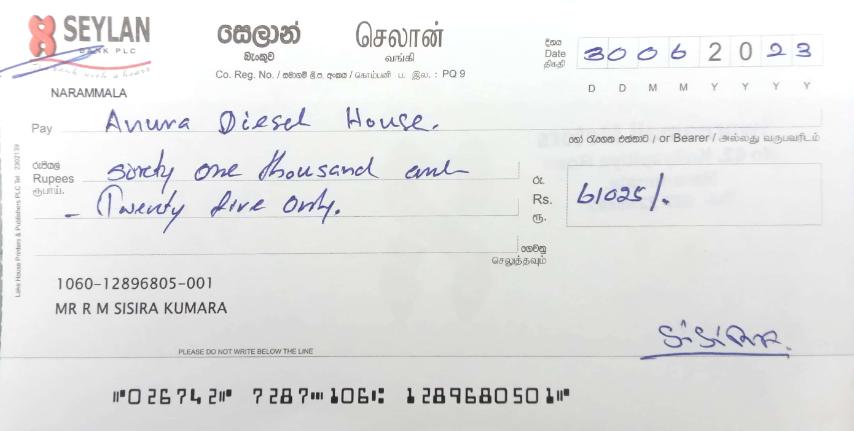 SEYLAN
BANK PLC
bank with a heart
NARAMMALA
සෙලාන් செலான்
බැංකුව வங்கி
Co. Reg. No. / සමාගම් ලි.ප. අංකය / கொம்பனி ப. இல. : PQ 9
දිනය
Date
திகதி
30 06 2023
D D M M Y Y Y Y
Pay Anura Diesel House.
හෝ රැගෙන එන්නාට / or Bearer / அல்லது வருபவரிடம்
රුපියල්
Rupees sixty one thousand and
ரூபாய்.
- Twenty five only.
රු.
Rs. 61025/.
ரூ.
ගෙවනු
செலுத்தவும்
Lake House Printers & Publishers PLC Tel 2302139
1060-12896805-001
MR R M SISIRA KUMARA
SiSiRA.
PLEASE DO NOT WRITE BELOW THE LINE
⑈026742⑈ 7287⑉106⑆ 1289680501⑈